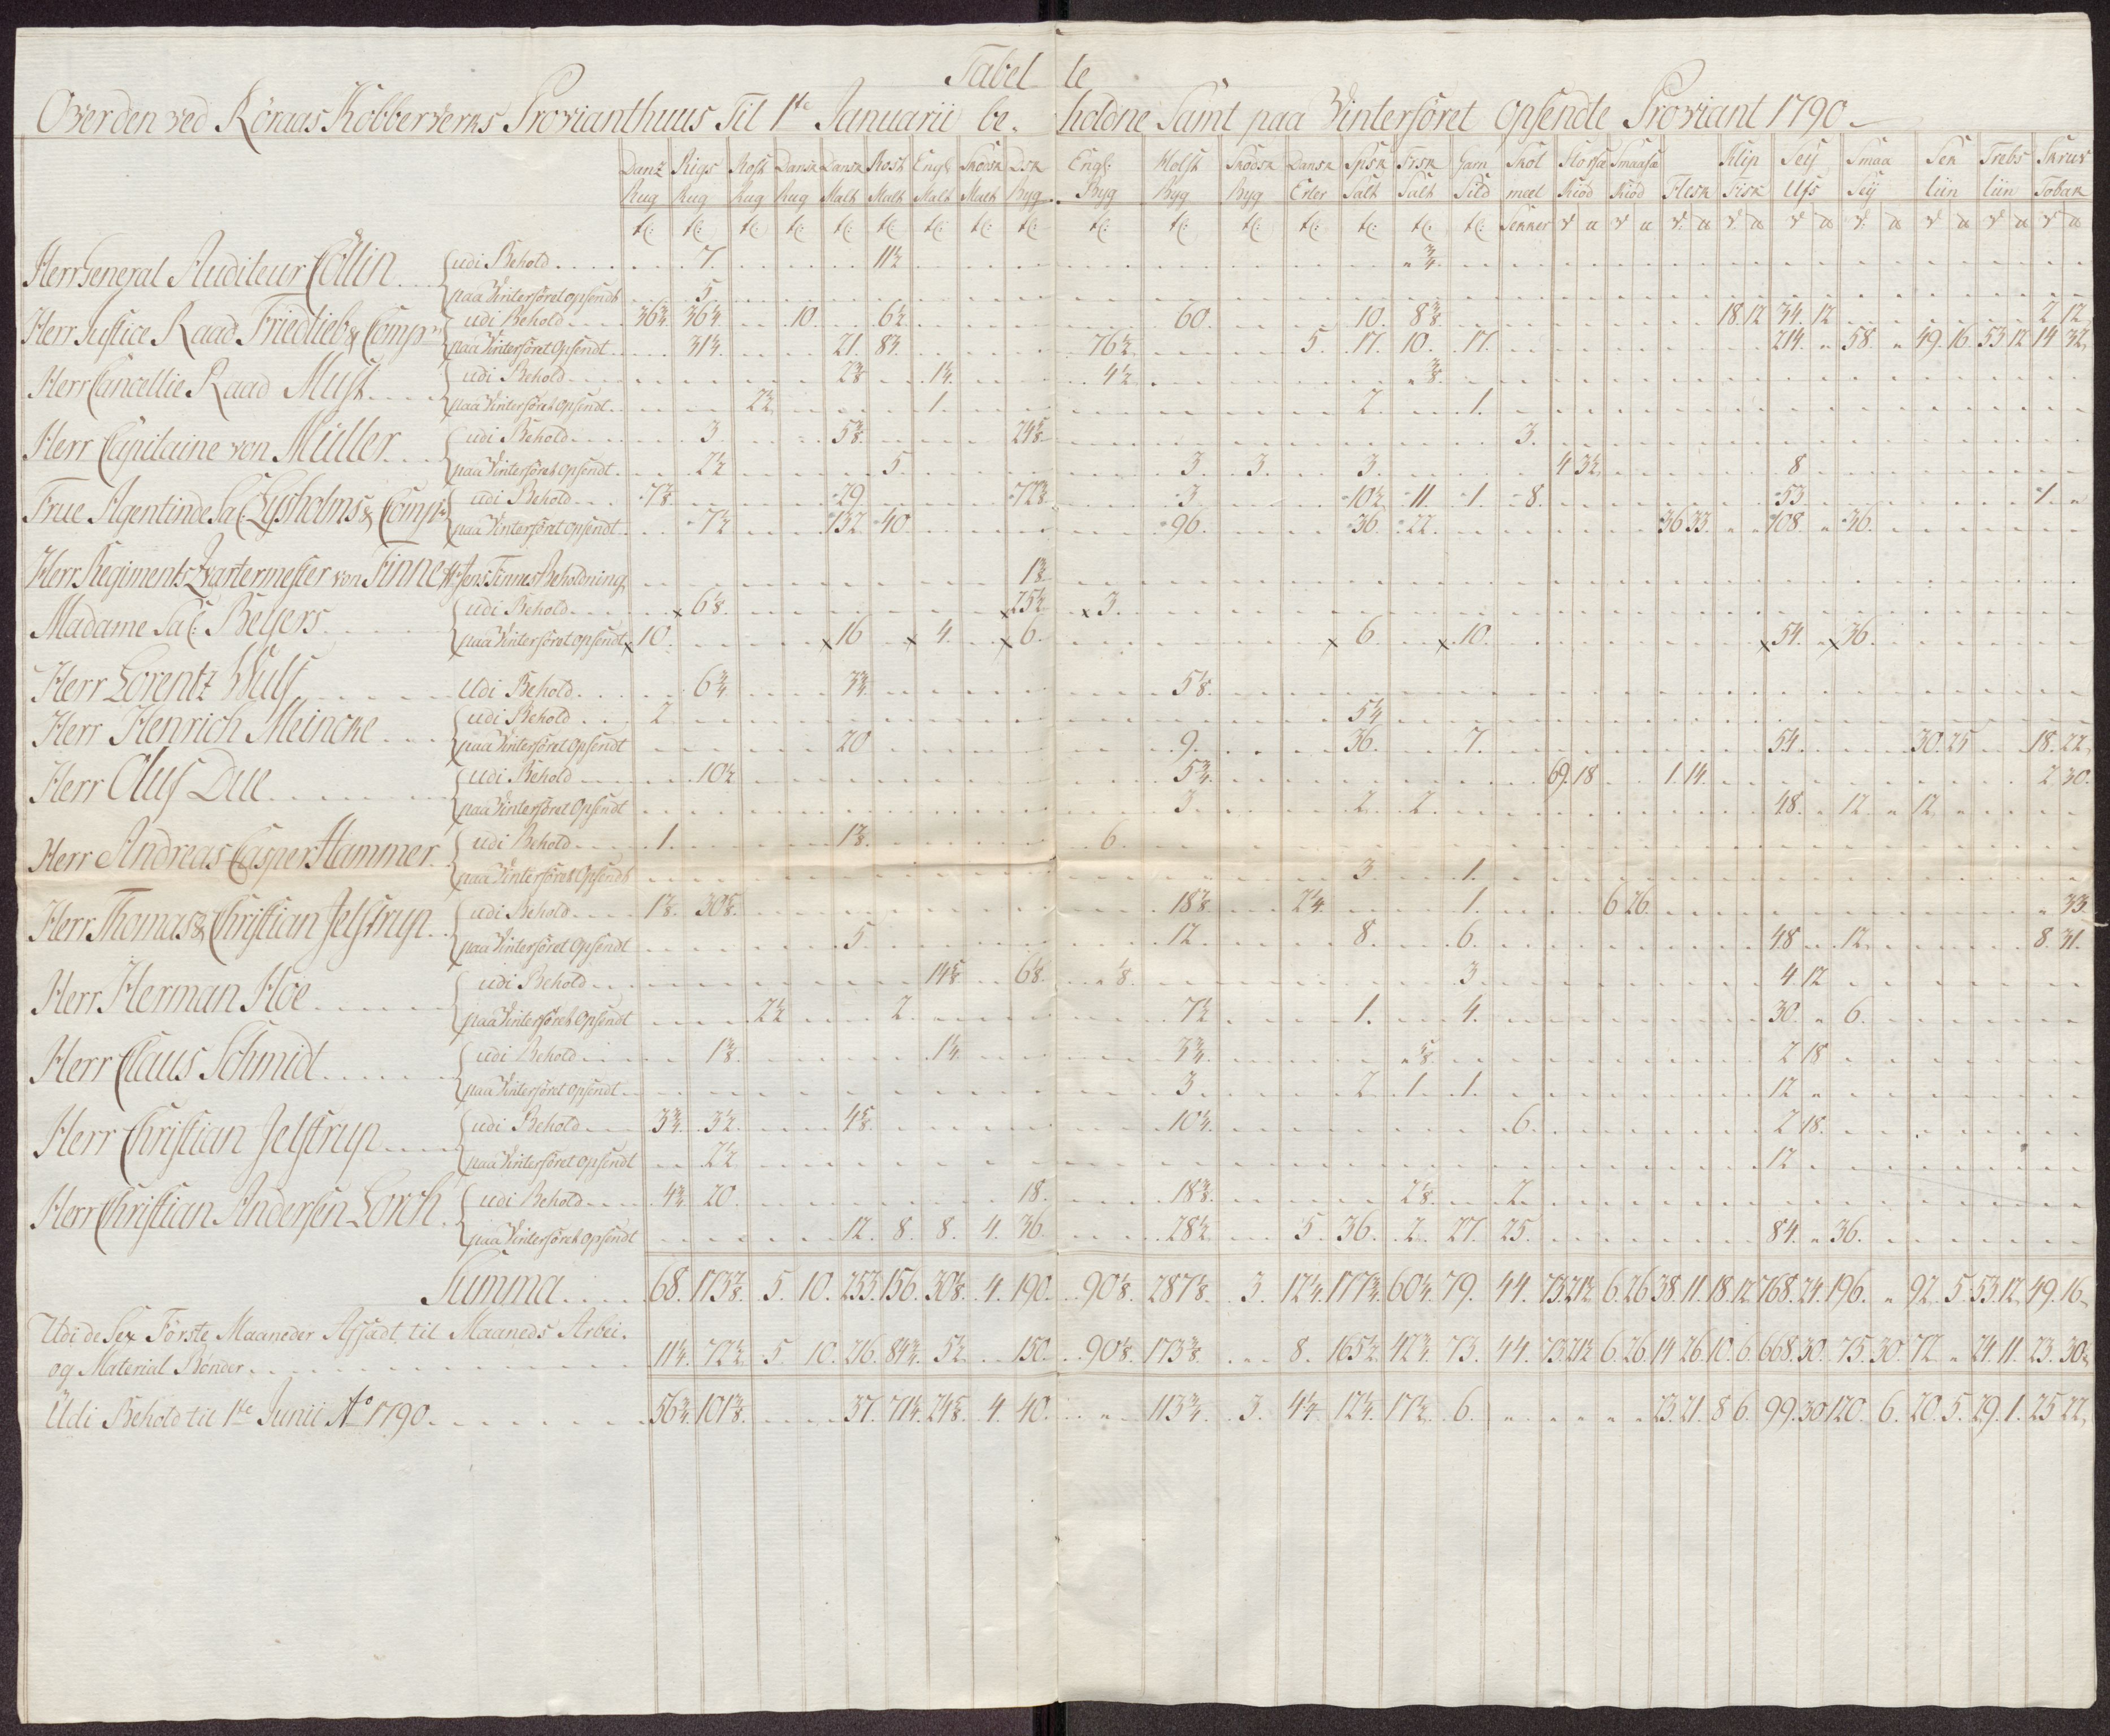 Tabelle
Over den ved Röraas Kobberverks Provianthuus Til 1te Januarii be. holdne Samt paa Vinterföret Opsendte Proviant 1790
Danz Rigs Rost Dansk Dansk Rost Engl: Skodsk Dsk Engl: Holst Skodsk Dansk Spsk Frsk Garn Skol Storsæ Smaasæ Klip Sey Smaa Sek Trebs Skruv
Rug Rug Rug Rug Malt Malt Malt Malt Byg Byg Byg Byg Erter Salt Salt Sild mæl Kiöd Kiöd Flesk Fisk Ufs Sey liin liin Tobak
Herr General Auditeur Cöllin udi Behold 7. 11½ " ¾
paa Vinterföret opsendt 5
Herr Justice Raad Friedlieb & Comp udi Behold 36¾ 36¼ 10. 6½ 60. 10. 8⅜ 18. 12 34. 12 2 12
paa Vinterföret Opsendt 31¼ 21. 83. 76½ 5. 17. 10. 17. 214. " 58. " 49. 16 53 12 14 32
Herr Cancellie Raad Must udi Behold 2⅜ 1¼ 4½ " ⅜
paa Vinterföret opsendt 2½ 1. 2. 1.
Herr Capitaine von Müller udi Behold 3. 5⅜ 24⅝ 3.
paa Vinterföret opsendt 2½ 5. 3. 3. 3. 4 3½ 8
Frue Agentinde Sa: Lysholms & Comp: udi Behold 7⅛ 29 72⅜ 3 10½ 11. 1. 8. 53 1. "
paa Vinterföret Opsendt 7½ 132 40. 96. 36. 22. 36 33. 108. " 36.
Herr Regiments Qvartermester von Finne Hr: Jens Finnes Beholdning 1⅜
Madame Sal: Beyers udi Behold 6⅛ 25½ 3.
paa Vinterföret opsendt 10. 16 4. 6. 6. 10. 54. 36.
Herr Lorentz Wulf Udi Behold 6¾ 3¾ 5⅛
Herr Henrich Meincke udi Behold 2 5¼
paa Vinterföret opsendt 20 9. 36. 7. 54. 30. 25 18. 22
Herr Oluf Due udi Behold 10½ 5¾ 69. 18 1. 14. 2 30.
paa Vinterföret Opsendt 3 2. 2. 48. 12. " 12
Herr Andreas Casper Hammer udi Behold 1. 1⅜ 6.
paa Vinterföret Opsendt 3. 1.
Herr Thomas & Christian Jelstrup udi Behold 1⅛ 30⅝ 18⅜ 2¼ 1. 6 26. " 33.
paa Vinterföret Opsendt 5. 12. 8. 6. 48 12. 8. 31.
Herr Herman Hoe udi Behold 14⅝ 6⅛ " ⅛ 3 4 12
paa Vinterföret Opsendt 2½ 2. 7½ 1. 4. 30. " 6.
Herr Claus Schmidt udi Behold 1⅜ 1¼ 3¾ " ⅝ 2 18
paa Vinterföret opsendt 3 2. 1. 1. 12 "
Herr Christian Jelstrup udi Behold 3¾ 3½ 4⅝ 10¼ 6. 2 18.
paa Vinterföret opsendt 2½ 12
Herr Christian Andersen Lorch udi Behold 4¾ 20 18. 18⅜ 2⅛ 2
paa Vinterföret opsendt 12. 8. 8. 4. 36. 28½ 5. 36. 2. 27. 25. 84. " 36.
Summa 68. 173⅞ 5. 10. 253. 156. 30⅛ 4. 190. 90⅛ 287⅛ 3. 12¼ 177¾ 60¼ 79. 44. 73 21½ 6. 26 38. 11. 18. 12 768. 24. 196. " 92. 5. 53 12. 49. 16
Udi de Sex Förste Maaneder Afsadt til Maaneds Arbei.
og Material Bönder 11¼ 72½ 5. 10. 216. 84¾ 5½ 150. 90⅛ 173⅜ 8. 165½ 42¾ 73. 44. 73 21½ 6. 26. 14 26 10. 6 668. 30. 75. 30. 72 " 24. 11. 23. 30
Udi Behold til 1te Junii Ao 1790 56¾ 101⅜ 37. 71¼ 24⅝ 4. 40. " 113¾ 3. 4¼ 12¼ 17½ 6. 23. 21. 8 6. 99. 30 120. 6. 20. 5. 29. 1. 25 22